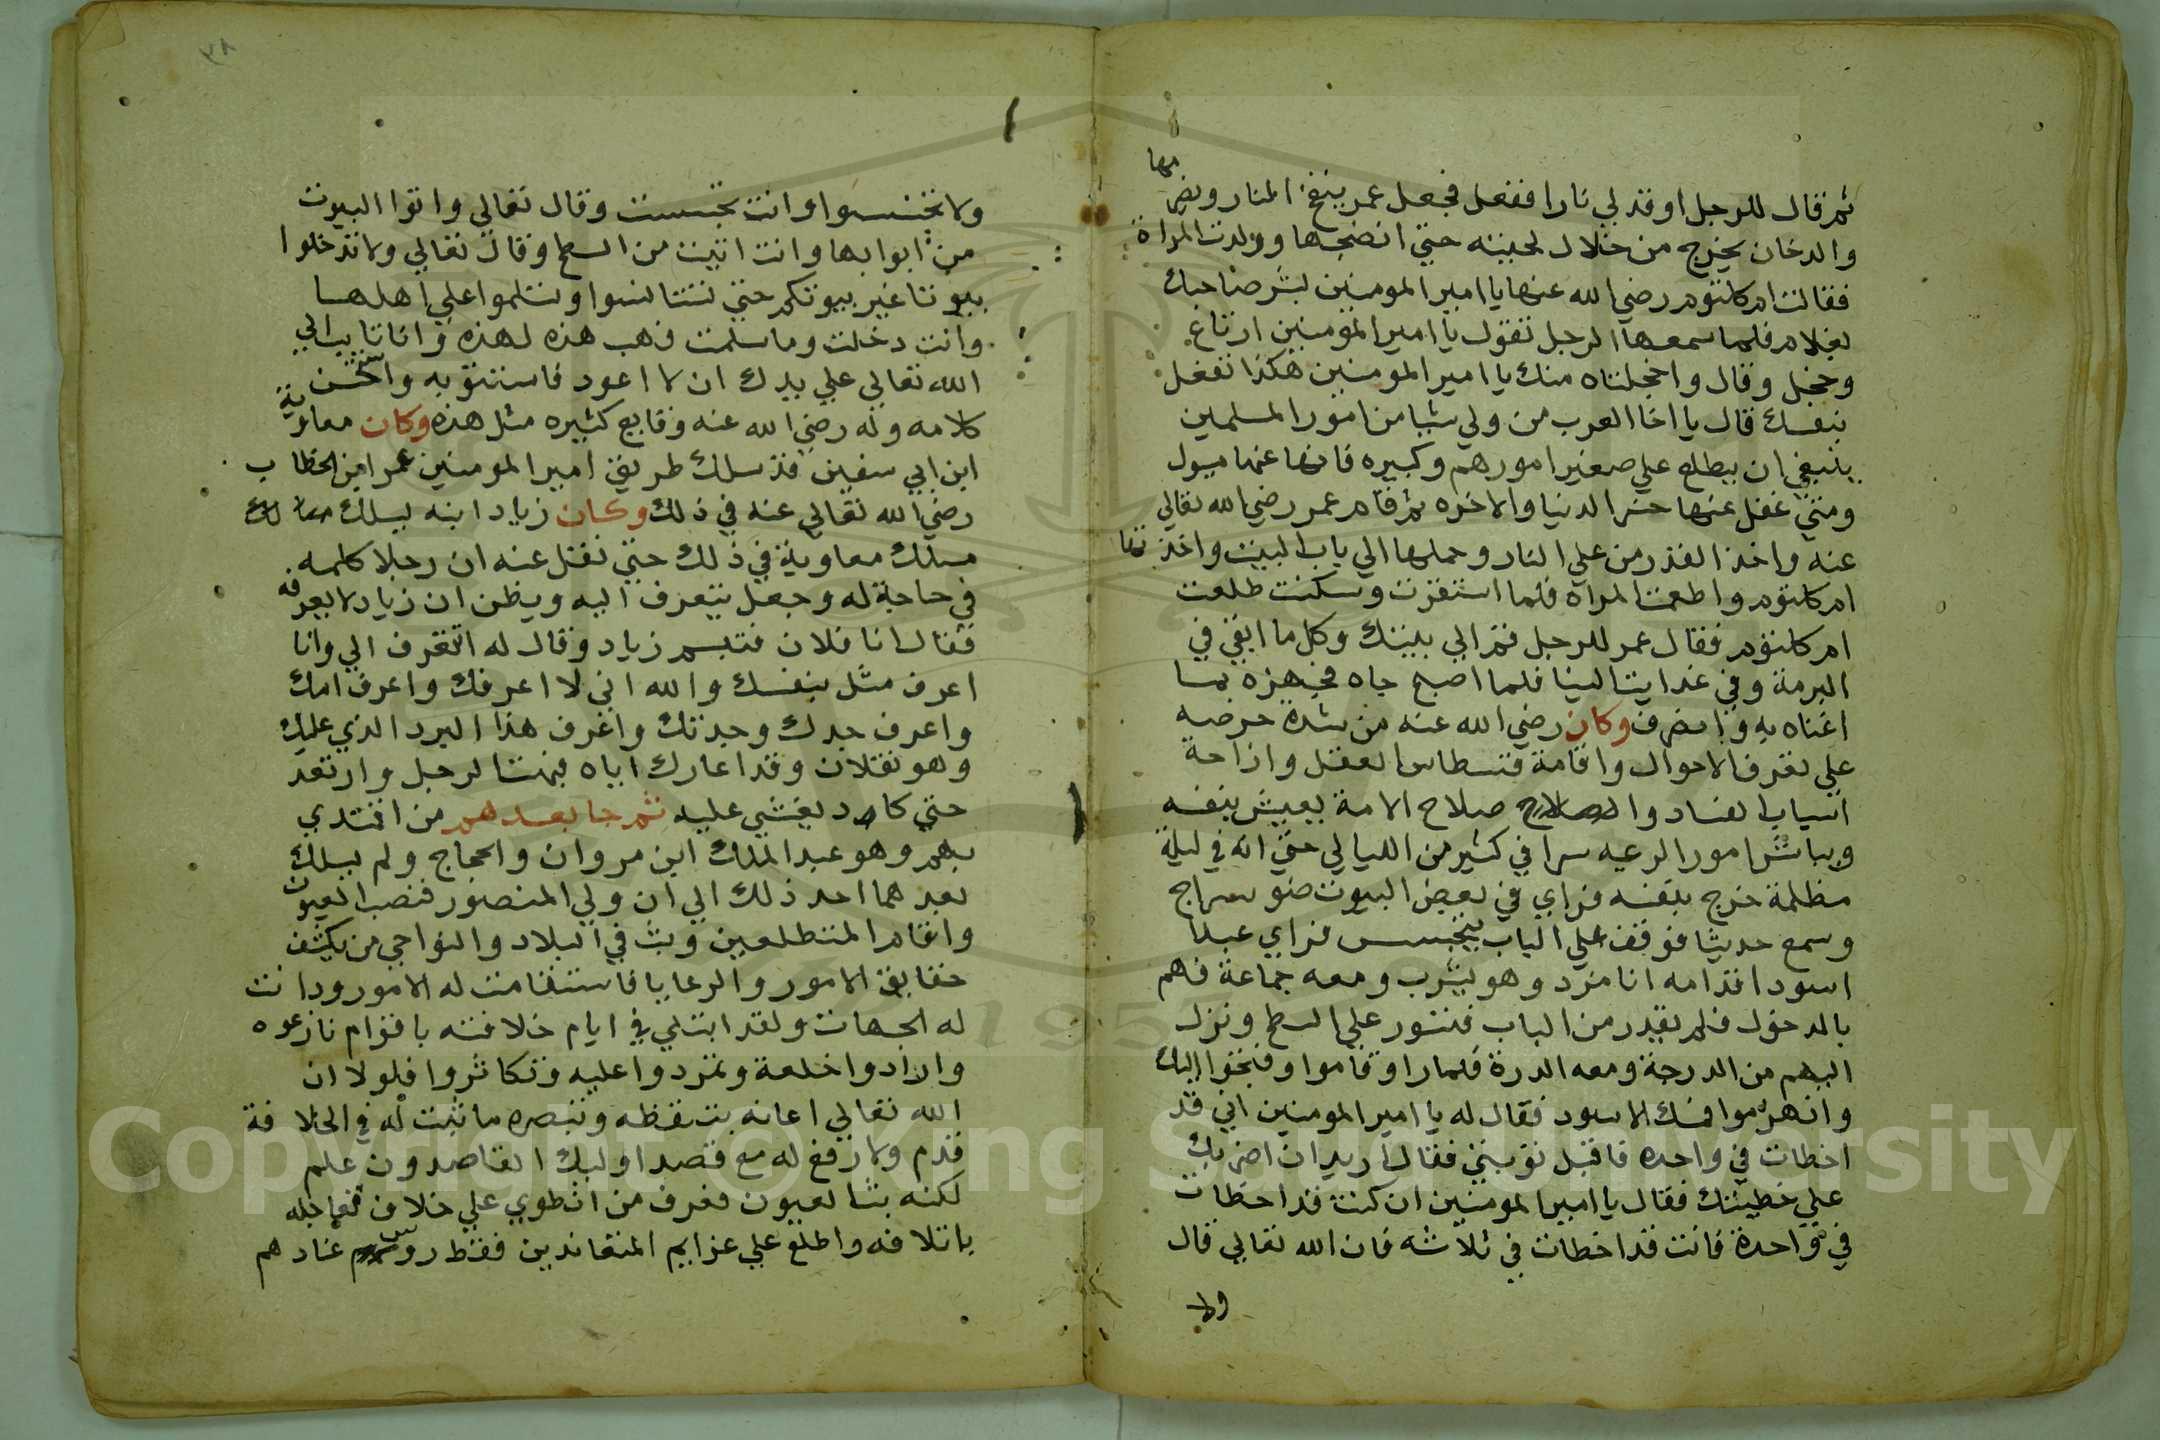 ثم قال للرجل اوقد لي نارا ففعل فجعل عمر ينفخ النار ويضرمها
والدخان يخرج من خلال لحيته حتي انضجها وولدت المراة
فقالت ام كلثوم رضي الله عنها يا امير المومنين بشر صاحبك
بغلام فلما سمعها الرجل تقول يا امير المومنين ارتاع
وخجل وقال واخجلتاه منك يا امير المومنين هكذا تفعل
بنفسك قال يا اخا العرب من ولي شيا من امور المسلمين
ينبغي ان يطلع علي صغير امورهم وكبيره فانها عنها ميول
ومتي غفل عنها خسر الدنيا والاخره ثم قام عمر رضي الله تعالي
عنه واخذ القدر من علي النار وحملها الي باب البيت واخذتها
ام كلثوم واطعمت المراة فلما استقرت وسكنت طلعت
ام كلثوم فقال عمر للرجل قم الي بيتك وكل ما ابقي في
البرمة وفي غد ايت الينا فلما اصبح جاه فجهزه بما
اغناه به وانصرف وكان رضي الله عنه من شدة حرصه
علي تعرف الاحوال واقامة قسطاس العقل وازاحة
اسباب الفساد والصلاح صلاح الامة يعيش بنفسه
ويباشر امور الرعيه سرا في كثير من الليالي حتي انه في ليلة
مظلمة خرج بنفسه فراي في بعض البيوت ضو سراج
وسمع حديثا فوقف علي الباب يتجسس فراي عبدا
اسود اقدامه انا مزر وهو يشرب ومعه جماعة فهم
بالدخول فلم يقدر من الباب فتسور علي السطح ونزل
اليهم من الدرجة ومعه الدرة فلما راوه قاموا وفتحوا الباب
وانهزموا فمسك الاسود فقال له يا امير المومنين اني قد
اخطات في واحده فاقبل توبتي فقال اريد ان اضربك
علي خطيئتك فقال يا امير المومنين ان كنت قد اخطات
في واحدة فانت قد اخطات في ثلاثه فان الله تعالي قال
ولا
٣٨
ولا تجسسوا وانت تجسست وقال تعالي واتوا البيوت
من ابوابها وانت اتيت من السطح وقال تعالي ولا تدخلوا
بيوتا غير بيوتكم حتي تستانسوا وتسلموا علي اهلها
وانت دخلت وما سلمت فهب هذه لهذه وانا تايب الي
الله تعالي علي يدك ان لا اعود فاستتوبه واستحسن
كلامه وله رضي الله عنه وقايع كثيره مثل هذه وكان معاوية
ابن ابي سفين قد سلك طريق امير المومنين عمر ابن الخطاب
رضي الله تعالي عنه في ذلك وكان زياد ابنه يسلك
مسلك معاوية في ذلك حتي نقل عنه ان رجلا كلمه
في حاجة له وجعل يتعرف اليه ويظن ان زياد لا يعرفه
فقال انا فلان فتبسم زياد وقال له اتتعرف الي وانا
اعرف منك بنفسك والله اني لا اعرفك واعرف امك
واعرف جدك وجدتك واعرف هذا البرد الذي عليك
وهو لفلان وقد اعارك اياه فبهت الرجل وارتعد
حتي كاد يغشي عليه ثم جا بعدهم من اقتدي
بهم وهو عبد الملك ابن مروان والحجاج ولم يسلك
بعدهما احد ذلك الي ان ولي المنصور فنصب العيون
واقام المتطلعين وبث في البلاد والنواحي من يكشف
حقايق الامور والرعايا فاستقامت له الامور ودانت
له الجهات ولقد ابتلي في ايام خلافته باقوام نازعوه
وارادوا خلعه وتمردوا عليه وتكاثروا فلولا ان
الله تعالي اعانه بتيقظه وتبصره ما ثبت له في الخلافة
قدم ولا رفع له مع قصد اوليك القاصدون علم
لكنه بث العيون فعرف من انطوي علي خلاف فعاجله
باتلافه واطلع علي عزايم المعاندين فقط روس عنادهم
Copyright © King Saud University
1957